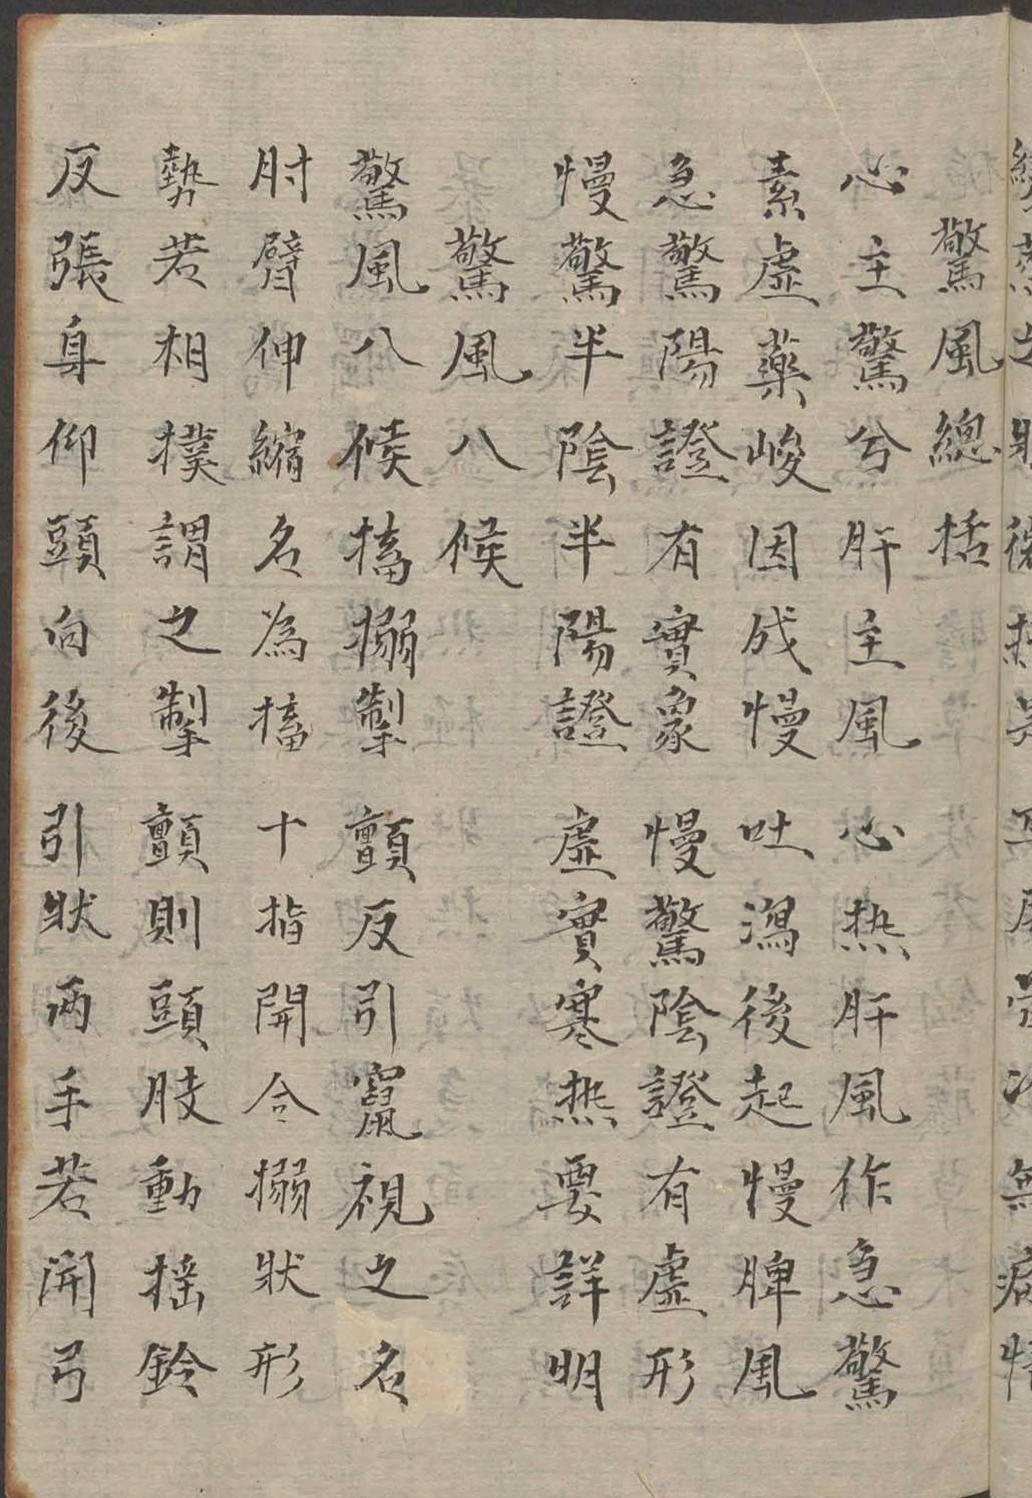 驚風總括
心主驚兮肝主風 心热肝風作急驚
素虛藥峻因成慢 吐瀉後起慢脾風
急驚陽證有實象 慢驚陰證有虛形
慢驚半陰半陽證 虛實寒热要詳明
驚風八候
驚風八候搐搦掣 顫反引竄視之名
肘臂伸縮名為搐 十指開合搦狀形
勢若相撲謂之掣 顫則頭肢動搖鈴
反張身仰頭向後 引狀両手若開弓